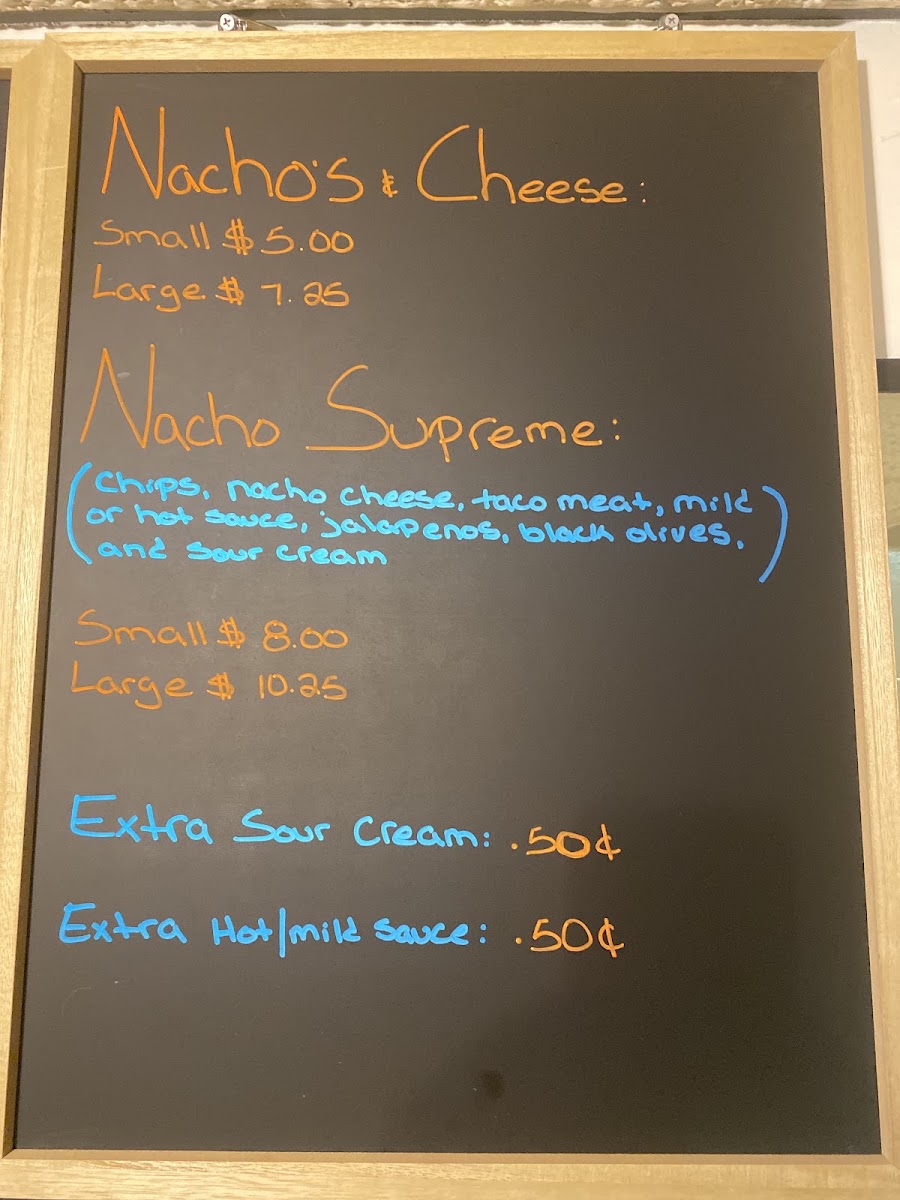 Nacho's & Cheese:
Small $5.00
Large $7.25
Nacho Supreme:
(Chips, nacho cheese, taco meat, mild
or hot sauce, jalapenos, black olives,
and sour cream)
Small $8.00
Large $10.25
Extra Sour Cream: .50¢
Extra Hot/mild sauce: .50¢